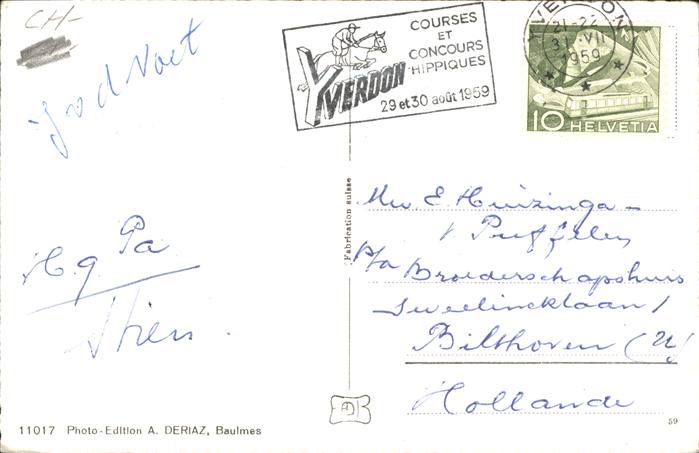 CH-
COURSES
ET
CONCOURS
HIPPIQUES
YVERDON
29 et 30 août 1959
YVERDON
21-22
31.VII
1959
10 HELVETIA
Pa
Stien.
Fabrication suisse
Mw E. Huizinga-
v Puffelen
P/a Broederschapshuis
Sweelincklaan 1
Bilthoven (U)
Hollande
11017 Photo-Edition A. DERIAZ, Baulmes
59